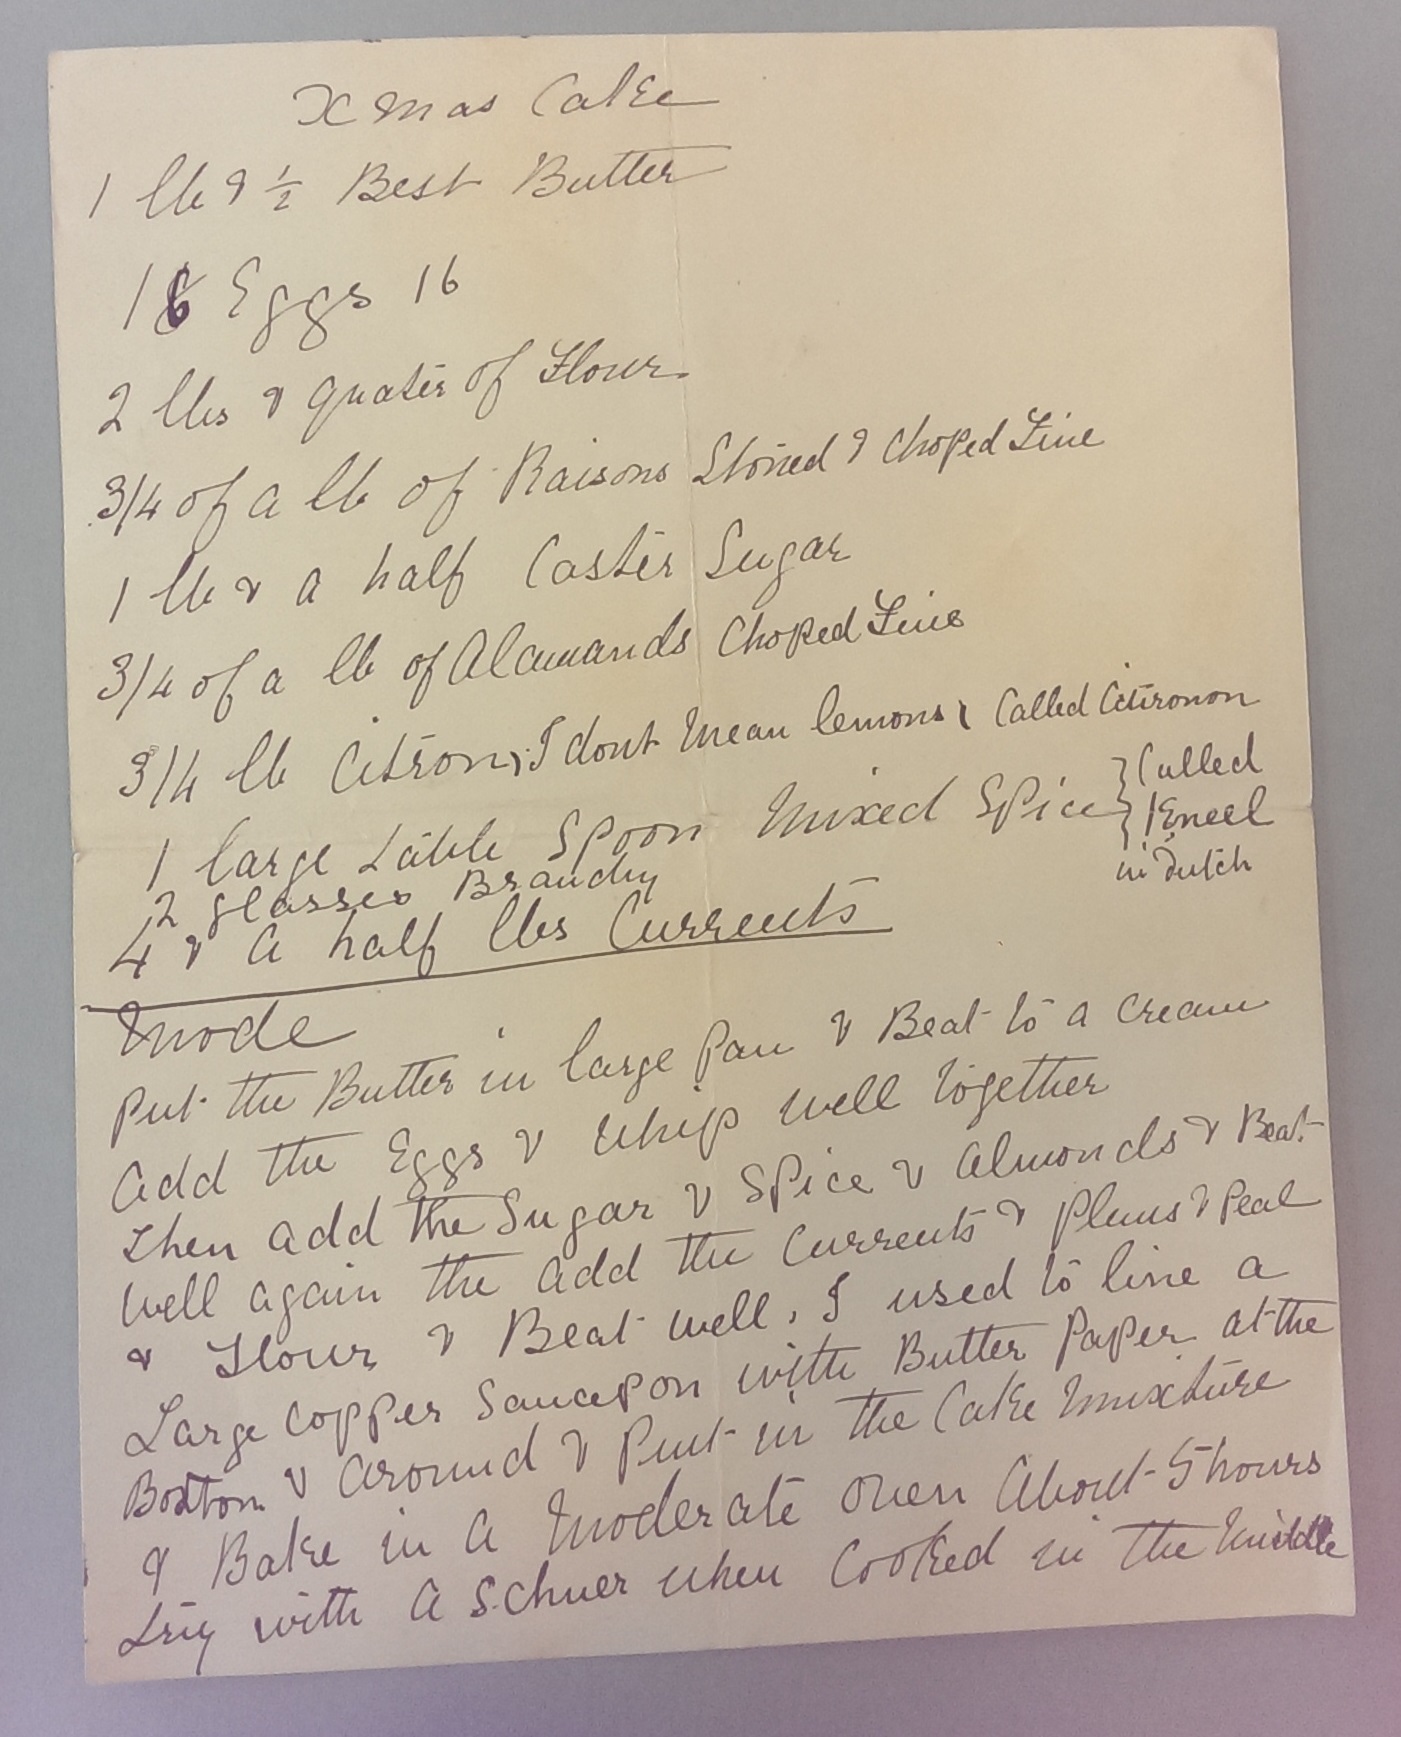 Xmas Cake
1 lb & ½ Best Butter
16 Eggs 16
2 lbs & quater of Flour
3/4 of a lb of Raisons Stoned & Choped Fine
1 lb & a half Caster Sugar
3/4 of a lb of Alamands Choped Fine
3/4 lb Citron, I dont mean lemons, Called Citronon
1 large table Spoon Mixed Spice } Called
} Kneel
in Dutch
2 glasses Brandy
4 & a half lbs Currents
Mode
Put the Butter in large Pan & Beat to a Cream
add the Eggs & whip well together
then add the Sugar & Spice & almonds & Beat
well again the add the Currents & Plums & Peal
& Flour & Beat well. I used to line a
Large Copper Saucepon with Butter Paper at the
Bottom & around & Put in the Cake Mixture
& Bake in a Moderate oven About 5 hours
try with a when Cooked in the Middle